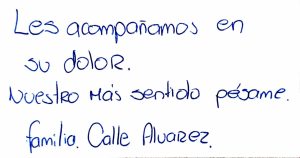 Les acompañamos en
su dolor.
Nuestro más sentido pésame.
familia. Calle Alvarez.